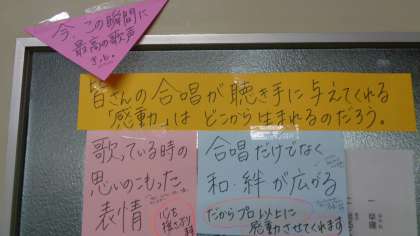 今、この瞬間に
最高の歌声
皆さんの合唱が聴き手に与えてくれる
「感動」は どこから生まれるのだろう。
歌っている時の
思いのこもった
表情
心を
揺さぶり
合唱だけでなく
和・絆が広がる
だからプロ以上に
感動させてくれます